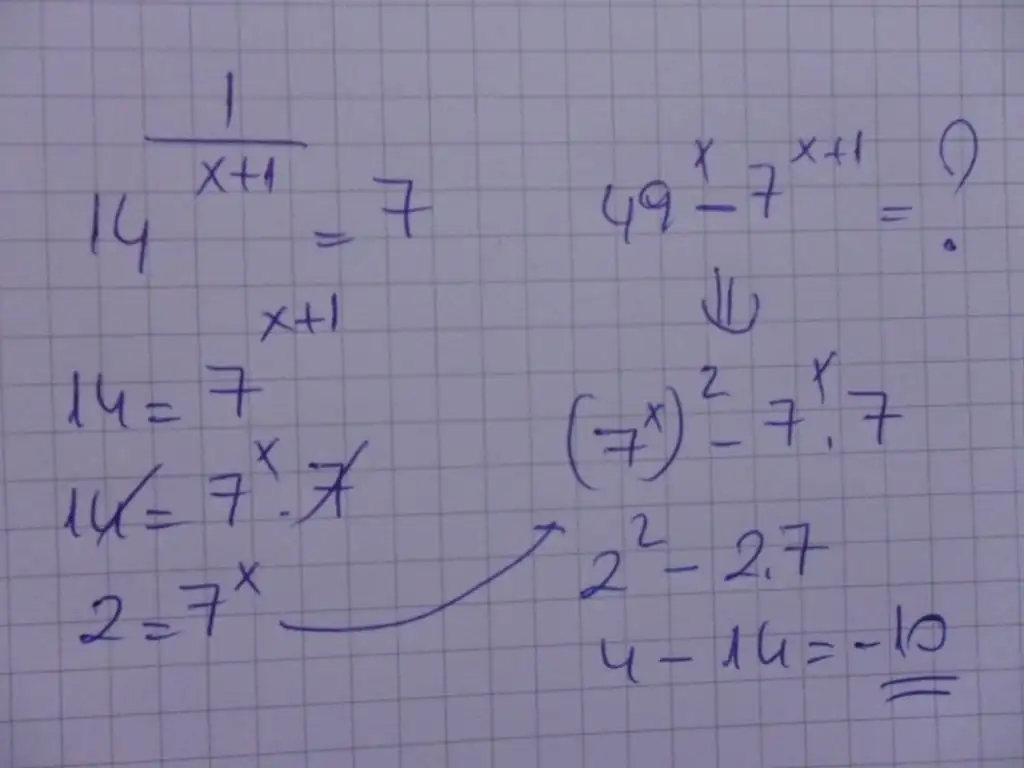 14^(1/(x+1)) = 7
14 = 7^(x+1)
14 = 7^x . 7
2 = 7^x
49^x - 7^(x+1) = ?
⇓
(7^x)^2 - 7^x . 7
2^2 - 2.7
4 - 14 = -10